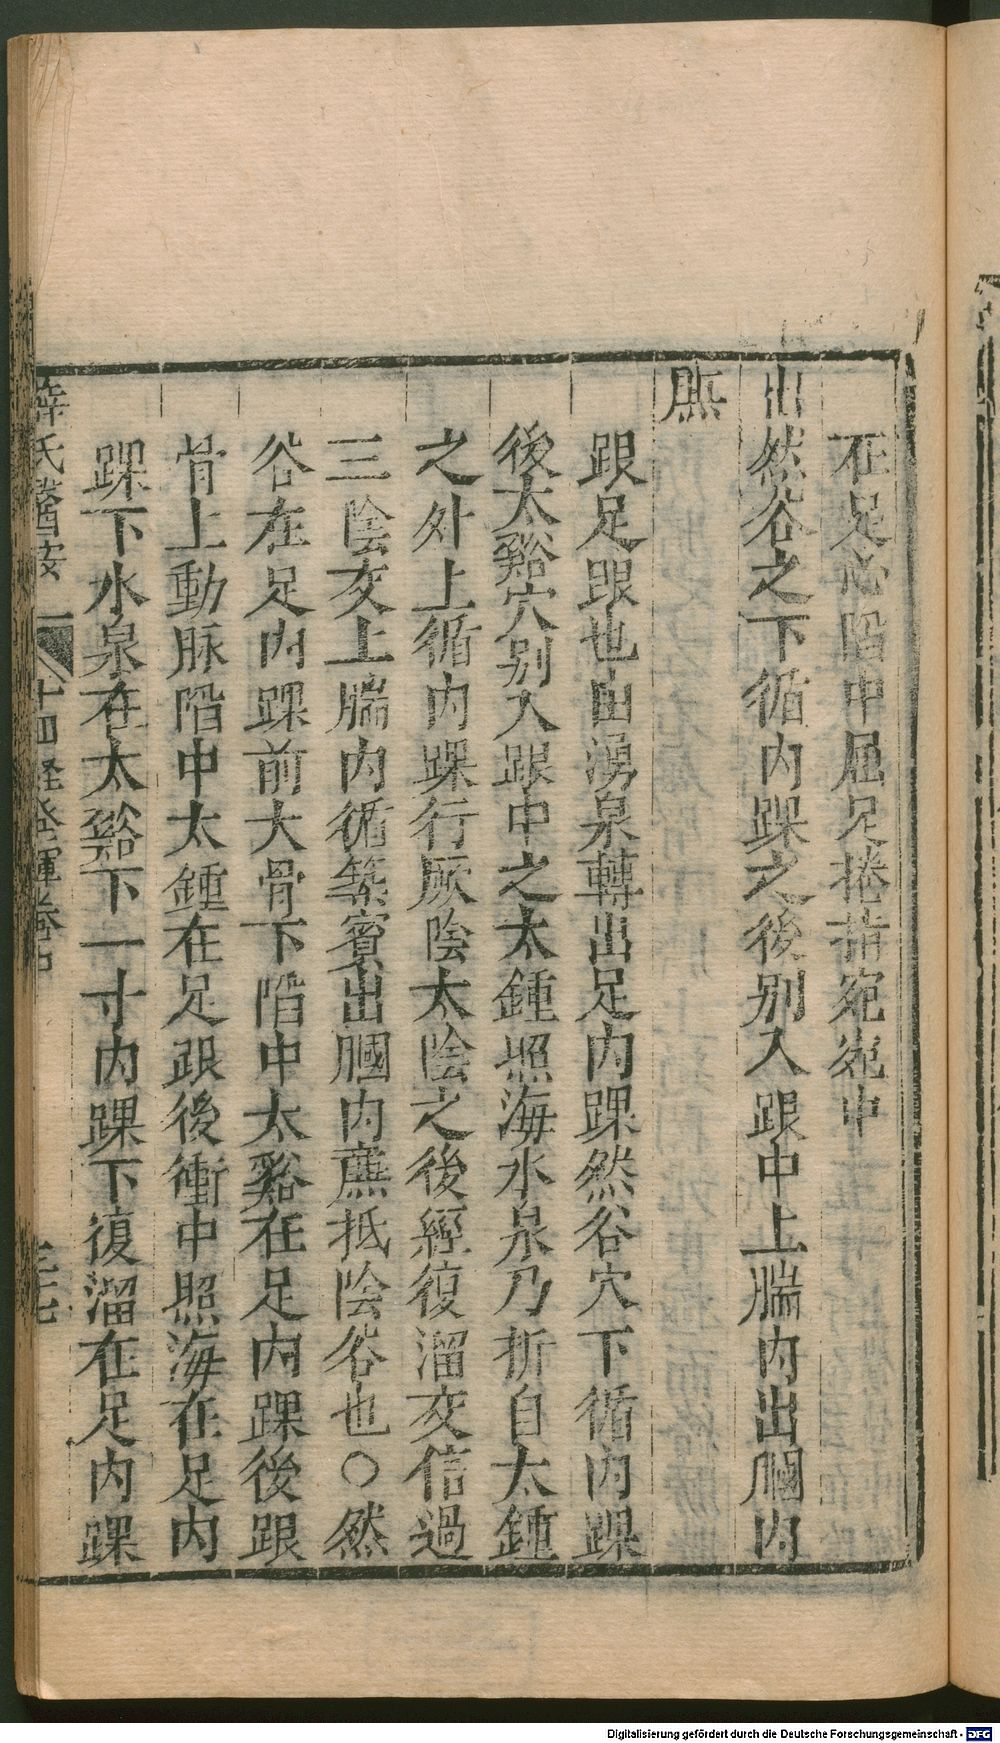 在足心陷中屈足捲指宛宛中
出然谷之下循内踝之後别入跟中上腨内出膕内
㢘
跟足跟也由湧泉轉出足内踝然谷穴下循内踝
後太谿穴别入跟中之太鍾照海水泉乃折自太鍾
之外上循内踝行厥陰太陰之後經復溜交信過
三陰交上腨内循築賓出膕内㢘抵陰谷也○然
谷在足内踝前大骨下陷中太谿在足内踝後跟
骨上動脉陷中太鍾在足跟後衝中照海在足内
踝下水泉在太谿下一寸内踝下復溜在足内踝
薛氏醫按 十四經發揮卷中 三七
Digitalisierung gefördert durch die Deutsche Forschungsgemeinschaft - DFG